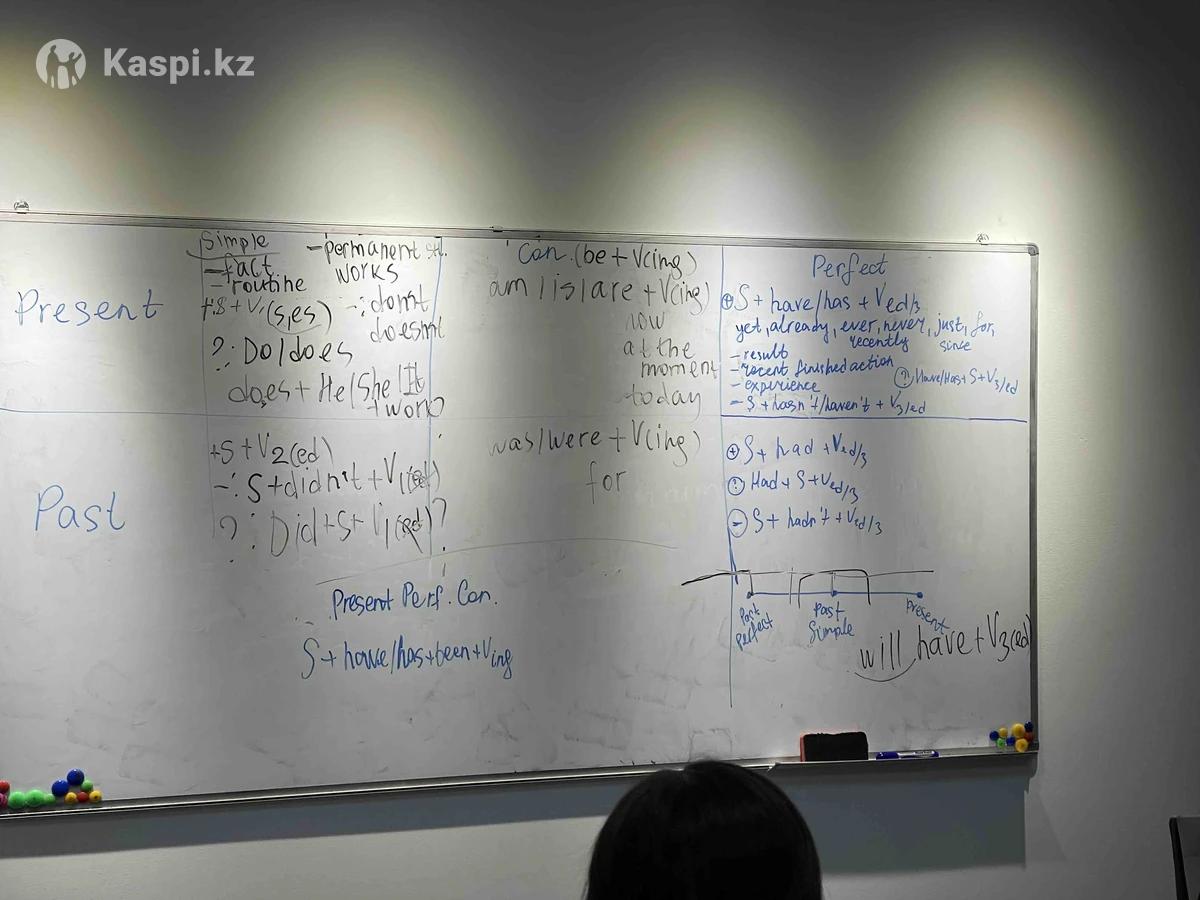 Kaspi.kz
Present
Simple
- fact
- routine
- permanent
works
+: S + V1(s,es)
-: don't
doesn't
?: Do/does
does + He/She/It
+ work?
Con. (be + V(ing)
am/is/are + V(ing)
now
at the
moment
today
Perfect
+ S + have/has + Ved/3
yet, already, ever, never, just, for,
recently
since
- result
- recent finished action
- experience
? Have/Has + S + V3/ed
- S + hasn't/haven't + V3/ed
Past
+S + V2(ed)
-: S+didn't + V1(ed)
?: Did+S+V1(ed)?
was/were + V(ing)
for
+ S+ had +Ved/3
? Had + S + Ved/3
- S + hadn't + Ved/3
Past
Perfect
Past
Simple
present
will have + V3(ed)
Present Perf. Con.
S + have/has+been+Ving